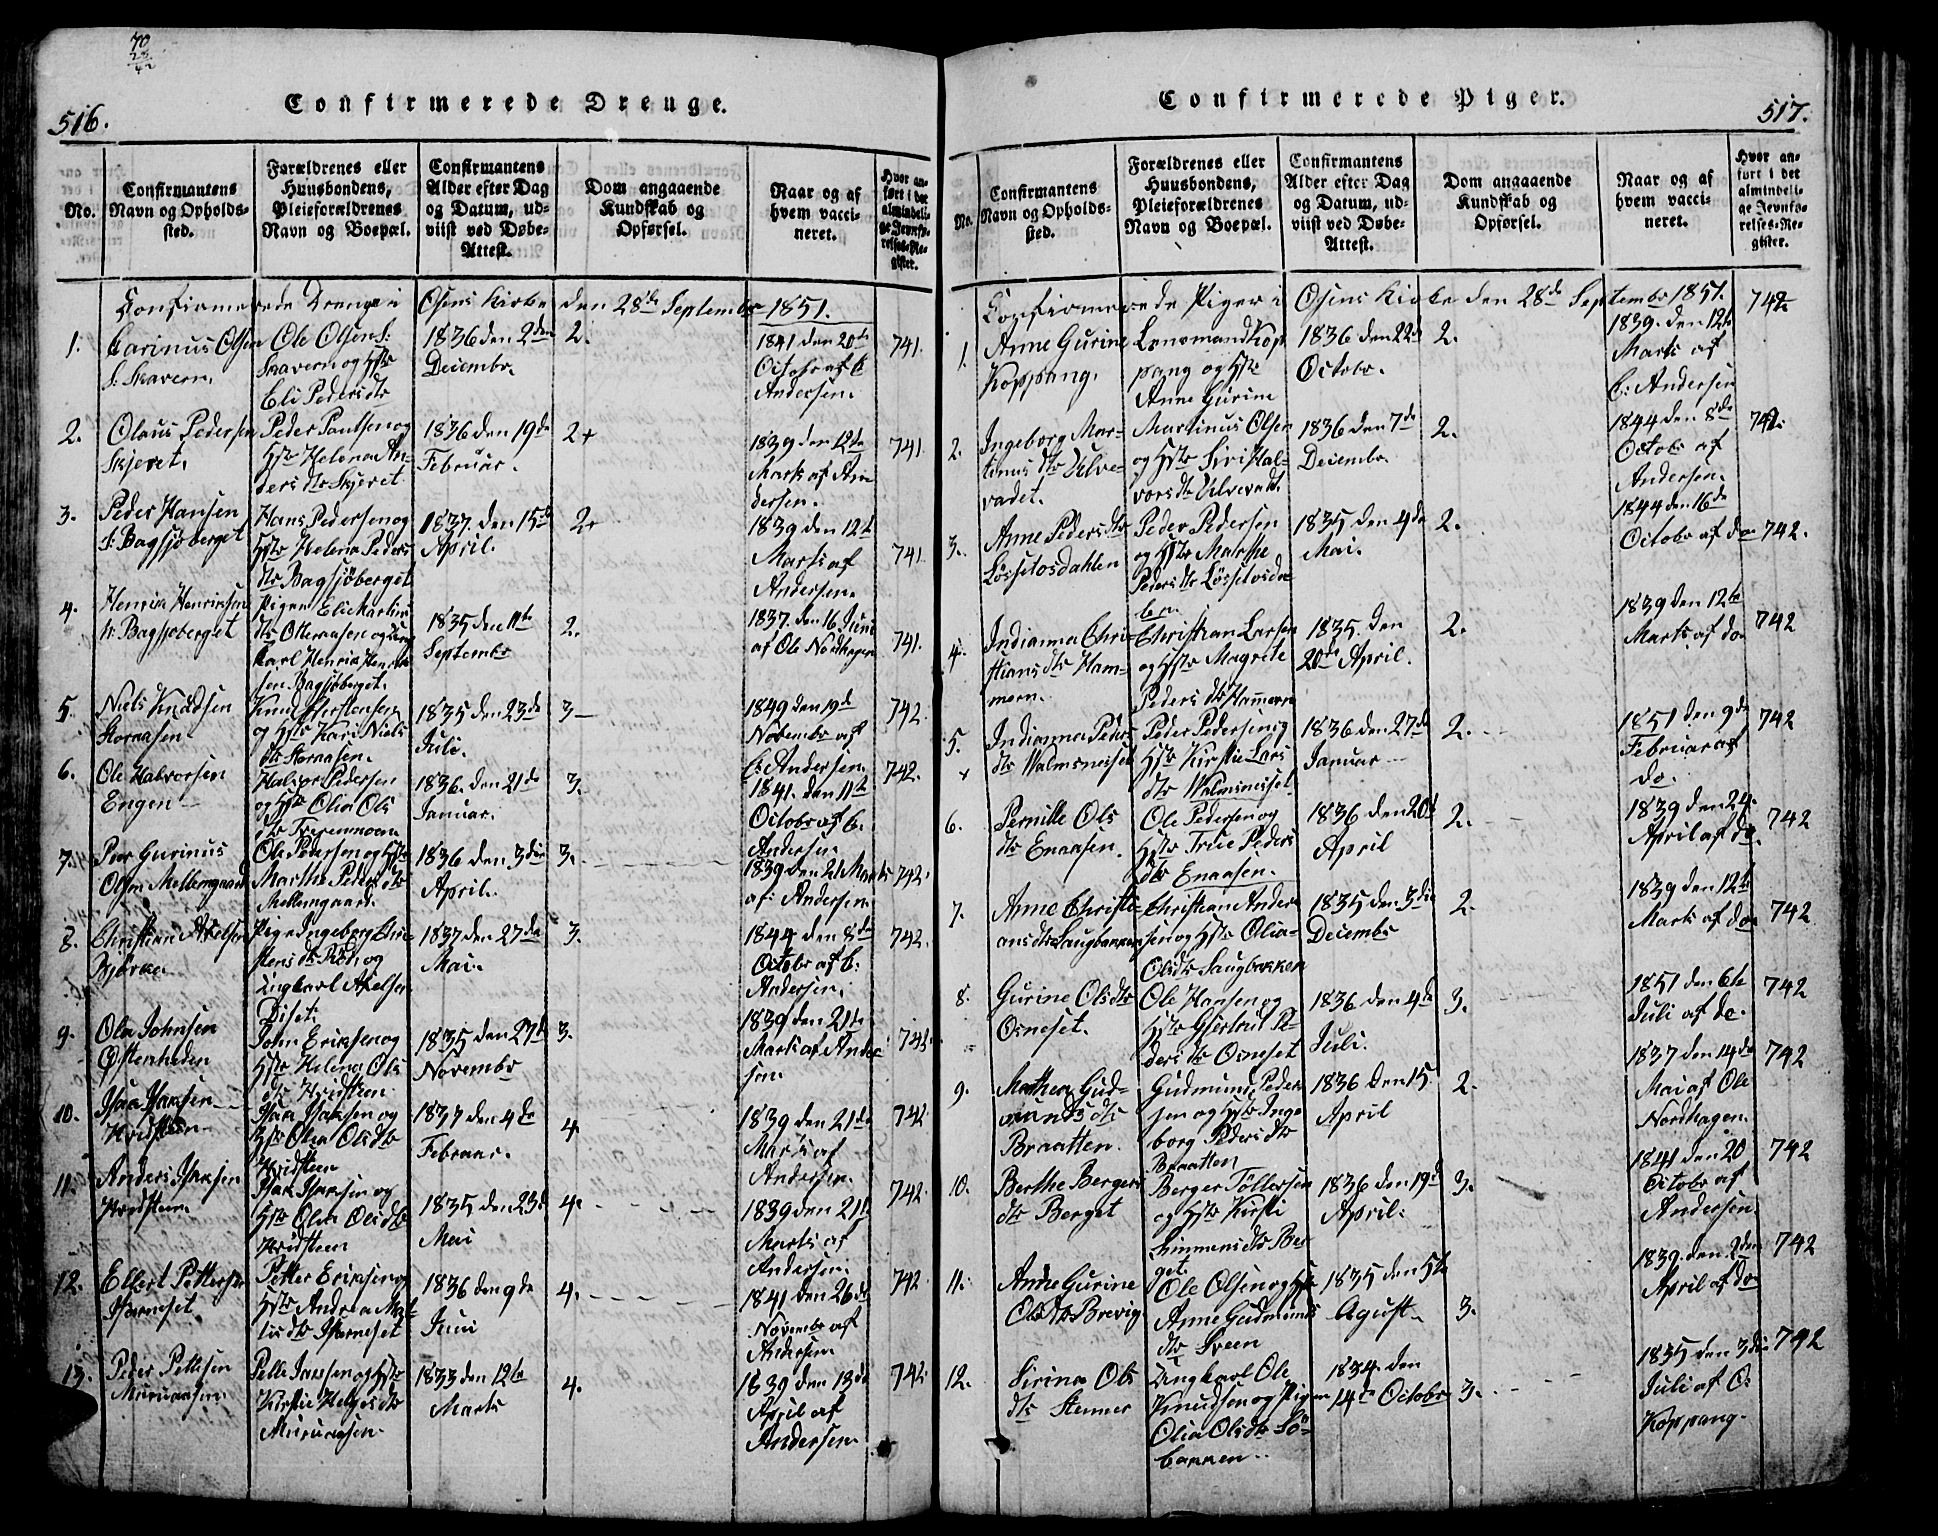 70
23
42
516.
Confirmerede Drenge.
No.
Confirmantens
Navn og Opholds-
sted.
Forældrenes eller
Huusbondens,
Pleieforældrenes
Navn og Boepæl.
Confirmantens
Alder efter Dag
og Datum, ud-
viist ved Døbe-
Attest.
Dom angaaende
Kundskab og
Opførsel.
Naar og af
hvem vacci-
neret.
Hvor an-
ført i det
almindeli-
ge Jevnfø-
relses-Re-
gister.
Confirmerede Drenge i Osens Kirke den 28de September 1851.
1.
Carinus Olsen
S: Skavern.
Ole Olsen S:
Skavern og Hstr
Eli Pedersdtr
1836 den 2den
Decembr.
2.
1841 den 20de
Octobr af C
Andersen.
741.
2.
Olaus Pedersen
Skjeret.
Peder Paulsen og
Hstr Helena An-
dersdtr Skjeret
1836 den 19de
Februar.
2+
1839 den 12te
Marts af An
dersen.
741
3.
Peder Hansen
S: Bagsjøberget
Hans Pedersen og
Hstr Helena Peders
dtr Bagsjöberget
1837. den 15de
April.
2+
1839 den 12te
Marts af
Andersen.
741
4.
Henrik Henriksen
N: Bagsjøberget
Pigen Eli Martins
dtr Otteraasen og Ung
Karl Henrik Henrik
sen Bagsjöberget.
1835 den 11te
Septembr
2.
1837. den 16 Juni
af Ole Nordhagen
741.
5.
Niels Knudsen
Storaasen
Knud Kerstensen
og Hstr Kari Niels
dtr Storaasen.
1835 den 23de
Juli.
3
1849 den 19de
Novembr af
C: Andersen.
742.
6.
Ole Halvorsen
Engen
Halvor Pedersen
og Hstr Olia Ols
dtr
1836. den 21de
Januar.
3.
1841. den 11te
Octobr af C.
Andersen
742.
7.
Peer Gurinus
Olsen Mellemgaard
Ole Pedersen og Hstr
Marthe Pedersdtr
Mellemgaard.
1836 den 3die
April.
3.
1839 den 21 Marts
af: Andersen
742.
8.
Christian Axelsen
Björke
Pigen Ingeborg Chri
stensdtr Röd og
Ungkarl Axelsen
Diset
1837 den 27de
Mai.
3.
1844 den 8de
Octobr af C:
Andersen.
742.
9.
Ole Johnsen
Østenheden
John Eriksen og
Hstr Helena Ols
dtr Kvidsteen
1835 den 27de
Novembr
3.
1839 den 21te
Marts af Ander
sen.
742.
10.
Isak Isaksen
Kvidsteen
Isak Isaksen og
Hstr Olia Olsdtr
Kvidsteen
1837 den 4de
Februar.
4.
1839 den 21de
Marts af
Andersen.
742.
11.
Anders Isaksen
Kvidsteen.
Isak Isaksen og
Hstr Olia Olsdtr
Kvidsteen
1835 den 23de
Mai
4.
1839 den 21de
Marts af
Andersen.
742.
12.
Ellert Pettersen
Petter Eriksen og
Hstr Andrea
1836 den 9de
Juni
4.
1841 den 26de
Novembr af
Andersen
742
13.
Peder Pettersen
Muruaasen.
Hstr
Kirstie Helgesdtr
Muruaasen.
1833 den 12te
Marts
4.
1839 den 13de
April af
Andersen.
742.
Confirmerede Piger.
517.
No.
Confirmantens
Navn og Opholds-
sted.
Forældrenes eller
Huusbondens,
Pleieforældrenes
Navn og Boepæl.
Confirmantens
Alder efter Dag
og Datum, ud-
viist ved Døbe-
Attest.
Dom angaaende
Kundskab og
Opførsel.
Naar og af
hvem vacci-
neret.
Hvor an-
ført i det
almindeli-
ge Jevnfø-
relses-Re-
gister.
Confirmerede Piger i Osens Kirke den 28de Septembr 1851.
742
1.
Anne Gurine
Koppang.
Lensmand Kop
pang og Hstr
Anne Gurine
1836 den 22de
Octobr.
2.
1839. den 12te
Marts af
C: Andersen
2.
Ingeborg Mar-
tinusdtr Ulve-
vadet.
Martinus Olsen
og Hstr Siri Hal-
vorsdtr Ulvevadet
1836 den 7de
Decembr
2.
1844 den 8de
Octobr af
Andersen.
742.
3.
Anne Pedersdtr
Lössetosdahlen
Peder Pedersen
og Hstr Marthe
Pedersdtr Lössetosda
len
1835 den 4de
Mai.
2.
1844 den 16de
Octobr af do
742.
4.
Indianna Chri-
stiansdtr Ham-
mern.
Christian Larsen
og Hstr Magrete
Pedersdtr Hammern
1835. den
20de April.
2.
1839 den 12te
Marts af do
742
5.
Indianna Peders
dtr Valmsneiset
Peder Pedersen og
Hstr Kirstie Lars
dtr Valmsneiset
1836 den 27de
Januar
2.
1851 den 9de
Februar af
do.
742
6.
Pernille Ols
dtr Enaasen.
Ole Pedersen og
Hstr Trine Peders
dtr Enaasen.
1836 den 20de
April
2.
1839 den 24.
April af do.
742
7.
Anne Christi-
ansdtr Saugbakken
Christian Ander
sen og Hstr Olia
Olsdtr Saugbakken
1835 den 3die
Decembr
2.
1839 den 12te
Marts af do
742
8.
Gurine Olsdtr
Osneset.
Ole Hansen og
Hstr Gjertrud Pe-
dersdtr Osneset
1836 den 4de
Juli.
3.
1851 den 6te
Juli af do.
742
9.
Mathea Gud-
mundsdtr
Braatten.
Gudmund Peder
sen og Hstr Inge
borg Pedersdtr
Braatten
1836 den 15.
April
2.
1837 den 14de
Mai af Ole
Nordhagen.
742
10.
Berthe Bergers
dtr Berget
Berger Töllersen
og Hstr Kirsti
Simmensdtr Ber
get.
1836 den 19de
April.
3.
1841 den 20
Octobr af
Andersen.
742
11.
Anne Gurine
Olsdtr Brevig
Ole Olsen og Hstr
Anne Gudmunds
dtr Sveen
1835 den 5te
Agust
3.
1839. den 2den
April af do
742
12.
Sirina Ols
dtr Stenner
Ungkarl Ole
Knudsen og Pigen
Olia Olsdtr Sö-
bakken
1834. den
14de Octobr
3.
1835 den 3die
Juli af O:
Koppang.
742